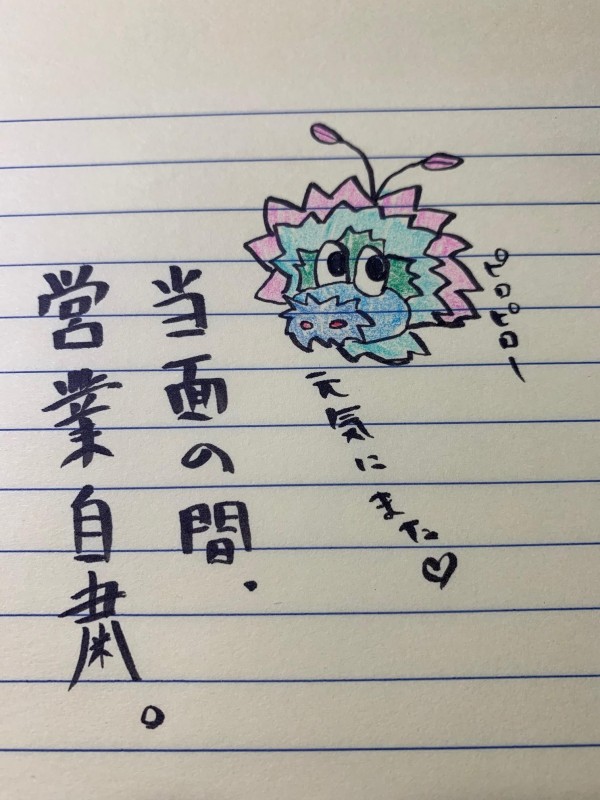 ピロピロー
元気にまた♡
当面の間.
営業自粛。